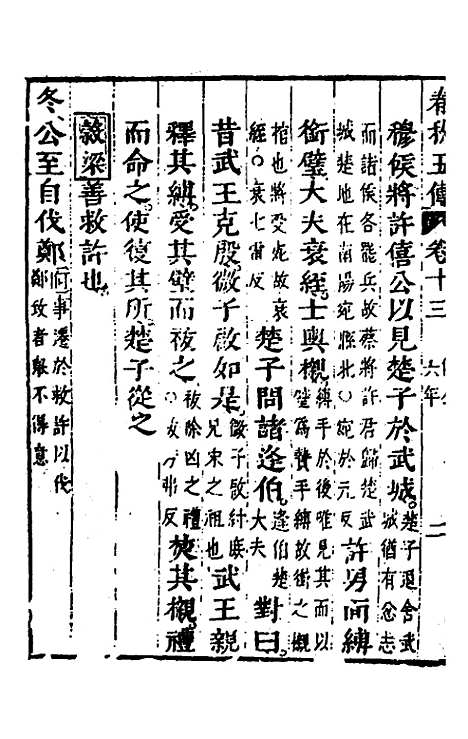 春秋五傳 卷十三 六年 二
穆侯將許僖公以見楚子於武城楚子退舍武城猶有忿志
而諸侯各罷兵故蔡將許君歸楚武城楚地在南陽宛縣北○宛於元反許男面縛
銜璧大夫衰絰士輿櫬縛手於後唯見其面以璧爲贄手縛故銜之櫬
棺也將受死故衰絰○衰七雷反楚子問諸逢伯逢伯楚大夫對曰
昔武王克殷微子啟如是微子啟紂庶兄宋之祖也武王親
釋其縛受其璧而祓之祓除凶之禮○祓 弗反焚其櫬禮
而命之使復其所楚子從之
穀梁善救許也
冬公至自伐鄭何事遷於救許以伐鄭致者舉不得意